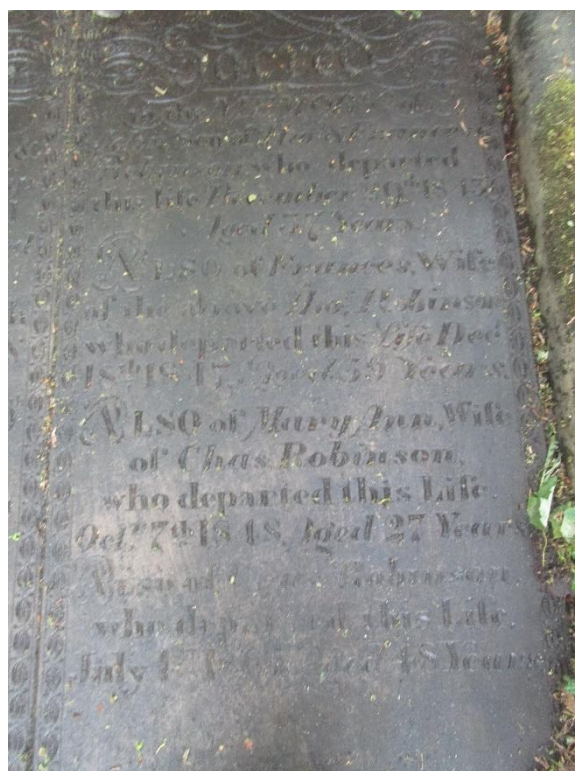 in the MEMORY of
who departed
this life December 29th 18
Aged 37 Years
ALSO of Frances, Wife
of the above Thos. Robinson
who departed this Life Decr
18th 1847, Aged 59 Years.
ALSO of Mary Ann, Wife
of Chas. Robinson,
who departed this Life,
Octr. 7th 1848, Aged 27 Years
Also of Robinson,
who departed this Life,
July Aged 48 Years